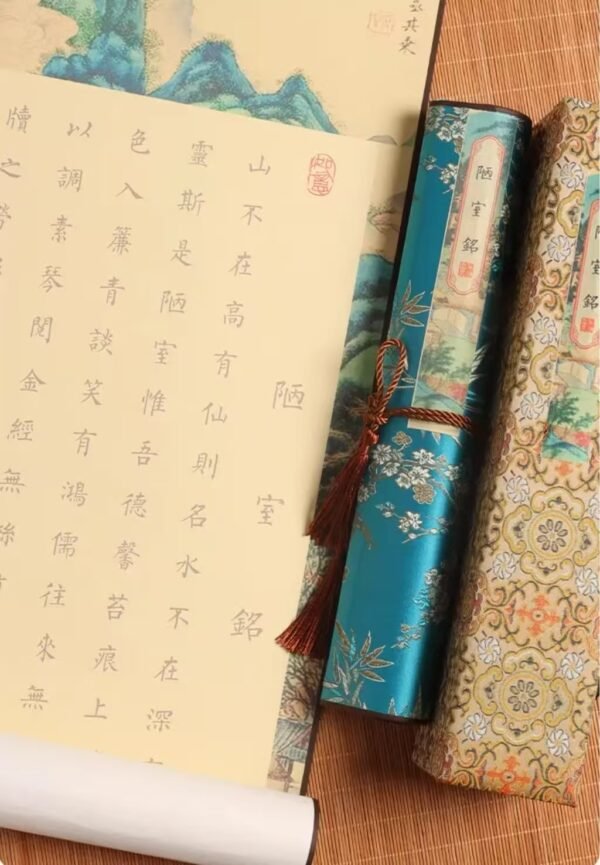 陋室銘
山不在高有仙則名水不在深
靈斯是陋室惟吾德馨苔痕上
色入簾青談笑有鴻儒往來無
以調素琴閱金經無絲
牘之勞
如意
陋室銘
陋室銘